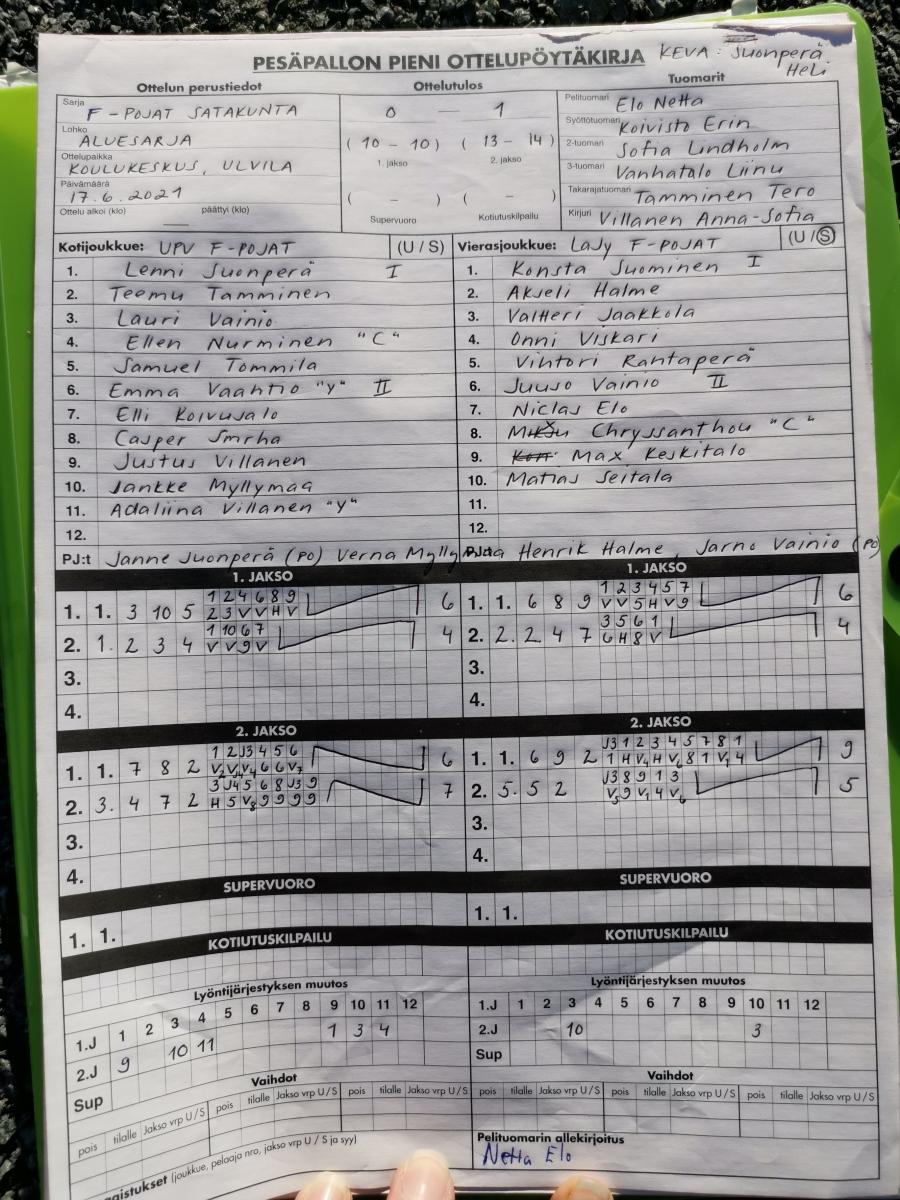 PESÄPALLON PIENI OTTELUPÖYTÄKIRJA KEVA: Suonperä Heli
Ottelun perustiedot Ottelutulos Tuomarit
Sarja F-POJAT SATAKUNTA
Lohko ALUESARJA
Ottelupaikka KOULUKESKUS, ULVILA
Päivämäärä 17.6.2021
Ottelu alkoi (klo) — päättyi (klo)
0 — 1
(10 - 10) (13 - 14)
1. jakso 2. jakso
( - ) ( - )
Supervuoro Kotiutuskilpailu
Pelituomari Elo Netta
Syöttötuomari Koivisto Erin
2-tuomari Sofia Lindholm
3-tuomari Vanhatalo Liinu
Takarajatuomari Tamminen Tero
Kirjuri Villanen Anna-Sofia
Kotijoukkue: UPV F-POJAT (U/S)
1. Lenni Suonperä I
2. Teemu Tamminen
3. Lauri Vainio
4. Ellen Nurminen "C"
5. Samuel Tommila
6. Emma Vaahtio "y" II
7. Elli Koivusalo
8. Casper Smrha
9. Justus Villanen
10. Jankke Myllymaa
11. Adaliina Villanen "y"
12.
PJ:t Janne Suonperä (PO) Verna Myllymaa
Vierasjoukkue: LaJy F-POJAT (U/S)
1. Konsta Suominen I
2. Akseli Halme
3. Valtteri Jaakkola
4. Onni Viskari
5. Vihtori Rantaperä
6. Juuso Vainio II
7. Niclas Elo
8. Chryssanthou "C"
9. Max Keskitalo
10. Matias Seitala
11.
12.
PJ:t Henrik Halme, Jarno Vainio (PO)
1. JAKSO
1. 1. 3 10 5 1 2 4 6 8 9 6
2 3 V V H V
2. 1. 2 3 4 1 10 6 7 4
V V 9 V
3.
4.
1. JAKSO
1. 1. 6 8 9 1 2 3 4 5 7 6
V V 5 H V 9
2. 2. 2 4 7 3 5 6 1 4
6 H 8 V
3.
4.
2. JAKSO
1. 1. 7 8 2 1 2 J3 4 5 6 6
V2 V4 V4 6 6 V7
2. 3. 4 7 2 3 J4 5 6 8 J3 9 7
H 5 V8 9 9 9 9
3.
4.
2. JAKSO
1. 1. 6 9 2 J3 1 2 3 4 5 7 8 1 9
1 H V4 H V6 8 1 V1 4
2. 5. 5 2 J3 8 9 1 3 5
V5 9 V1 4 V6
3.
4.
SUPERVUORO SUPERVUORO
1. 1. 1. 1.
KOTIUTUSKILPAILU KOTIUTUSKILPAILU
Lyöntijärjestyksen muutos
1.J 1 2 3 4 5 6 7 8 9 10 11 12
2.J 9 10 11 1 3 4
Sup
Lyöntijärjestyksen muutos
1.J 1 2 3 4 5 6 7 8 9 10 11 12
2.J 10 3
Sup
Vaihdot
pois tilalle Jakso vrp U/S pois tilalle Jakso vrp U/S pois tilalle Jakso vrp U/S
Vaihdot
pois tilalle Jakso vrp U/S pois tilalle Jakso vrp U/S pois tilalle Jakso vrp U/S
gaistukset (joukkue, pelaaja nro, jakso vrp U / S ja syy)
Pelituomarin allekirjoitus
Netta Elo